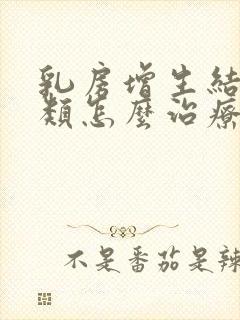 乳房增生結
類怎麼治療
不是番茄是辣